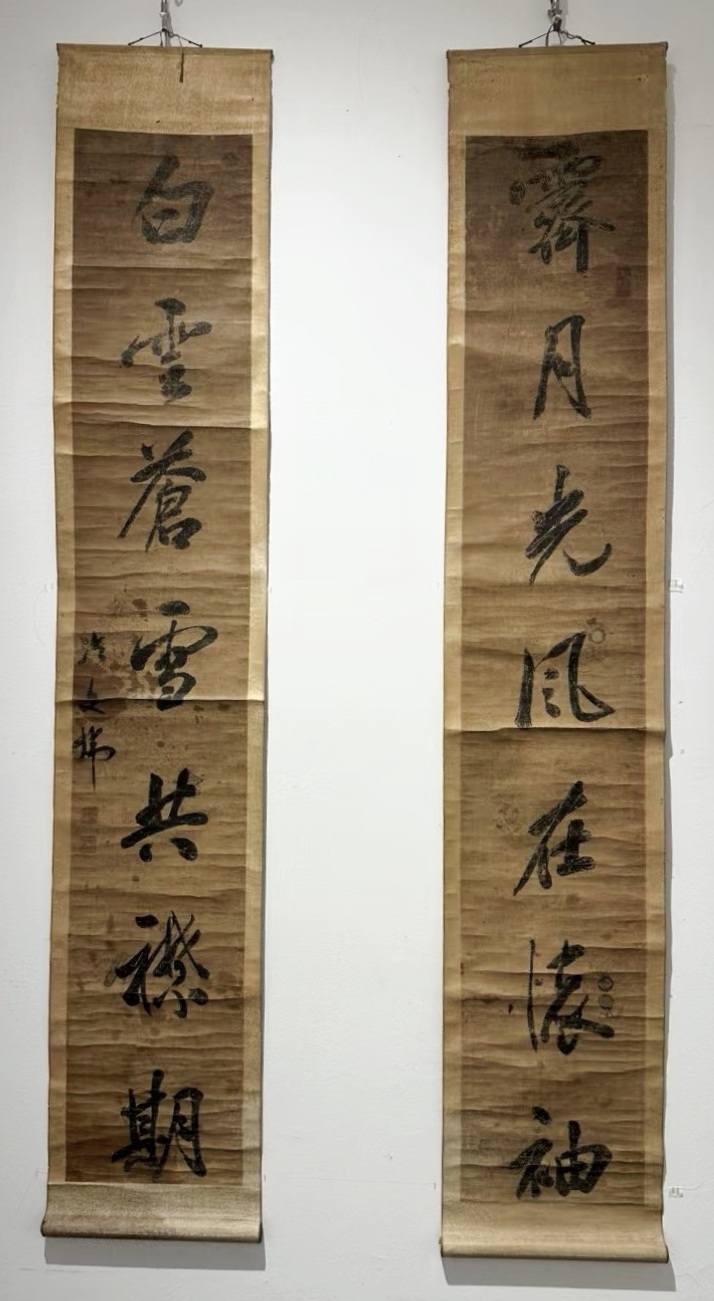 霽月光風在懷袖
白雲蒼雪共襟期